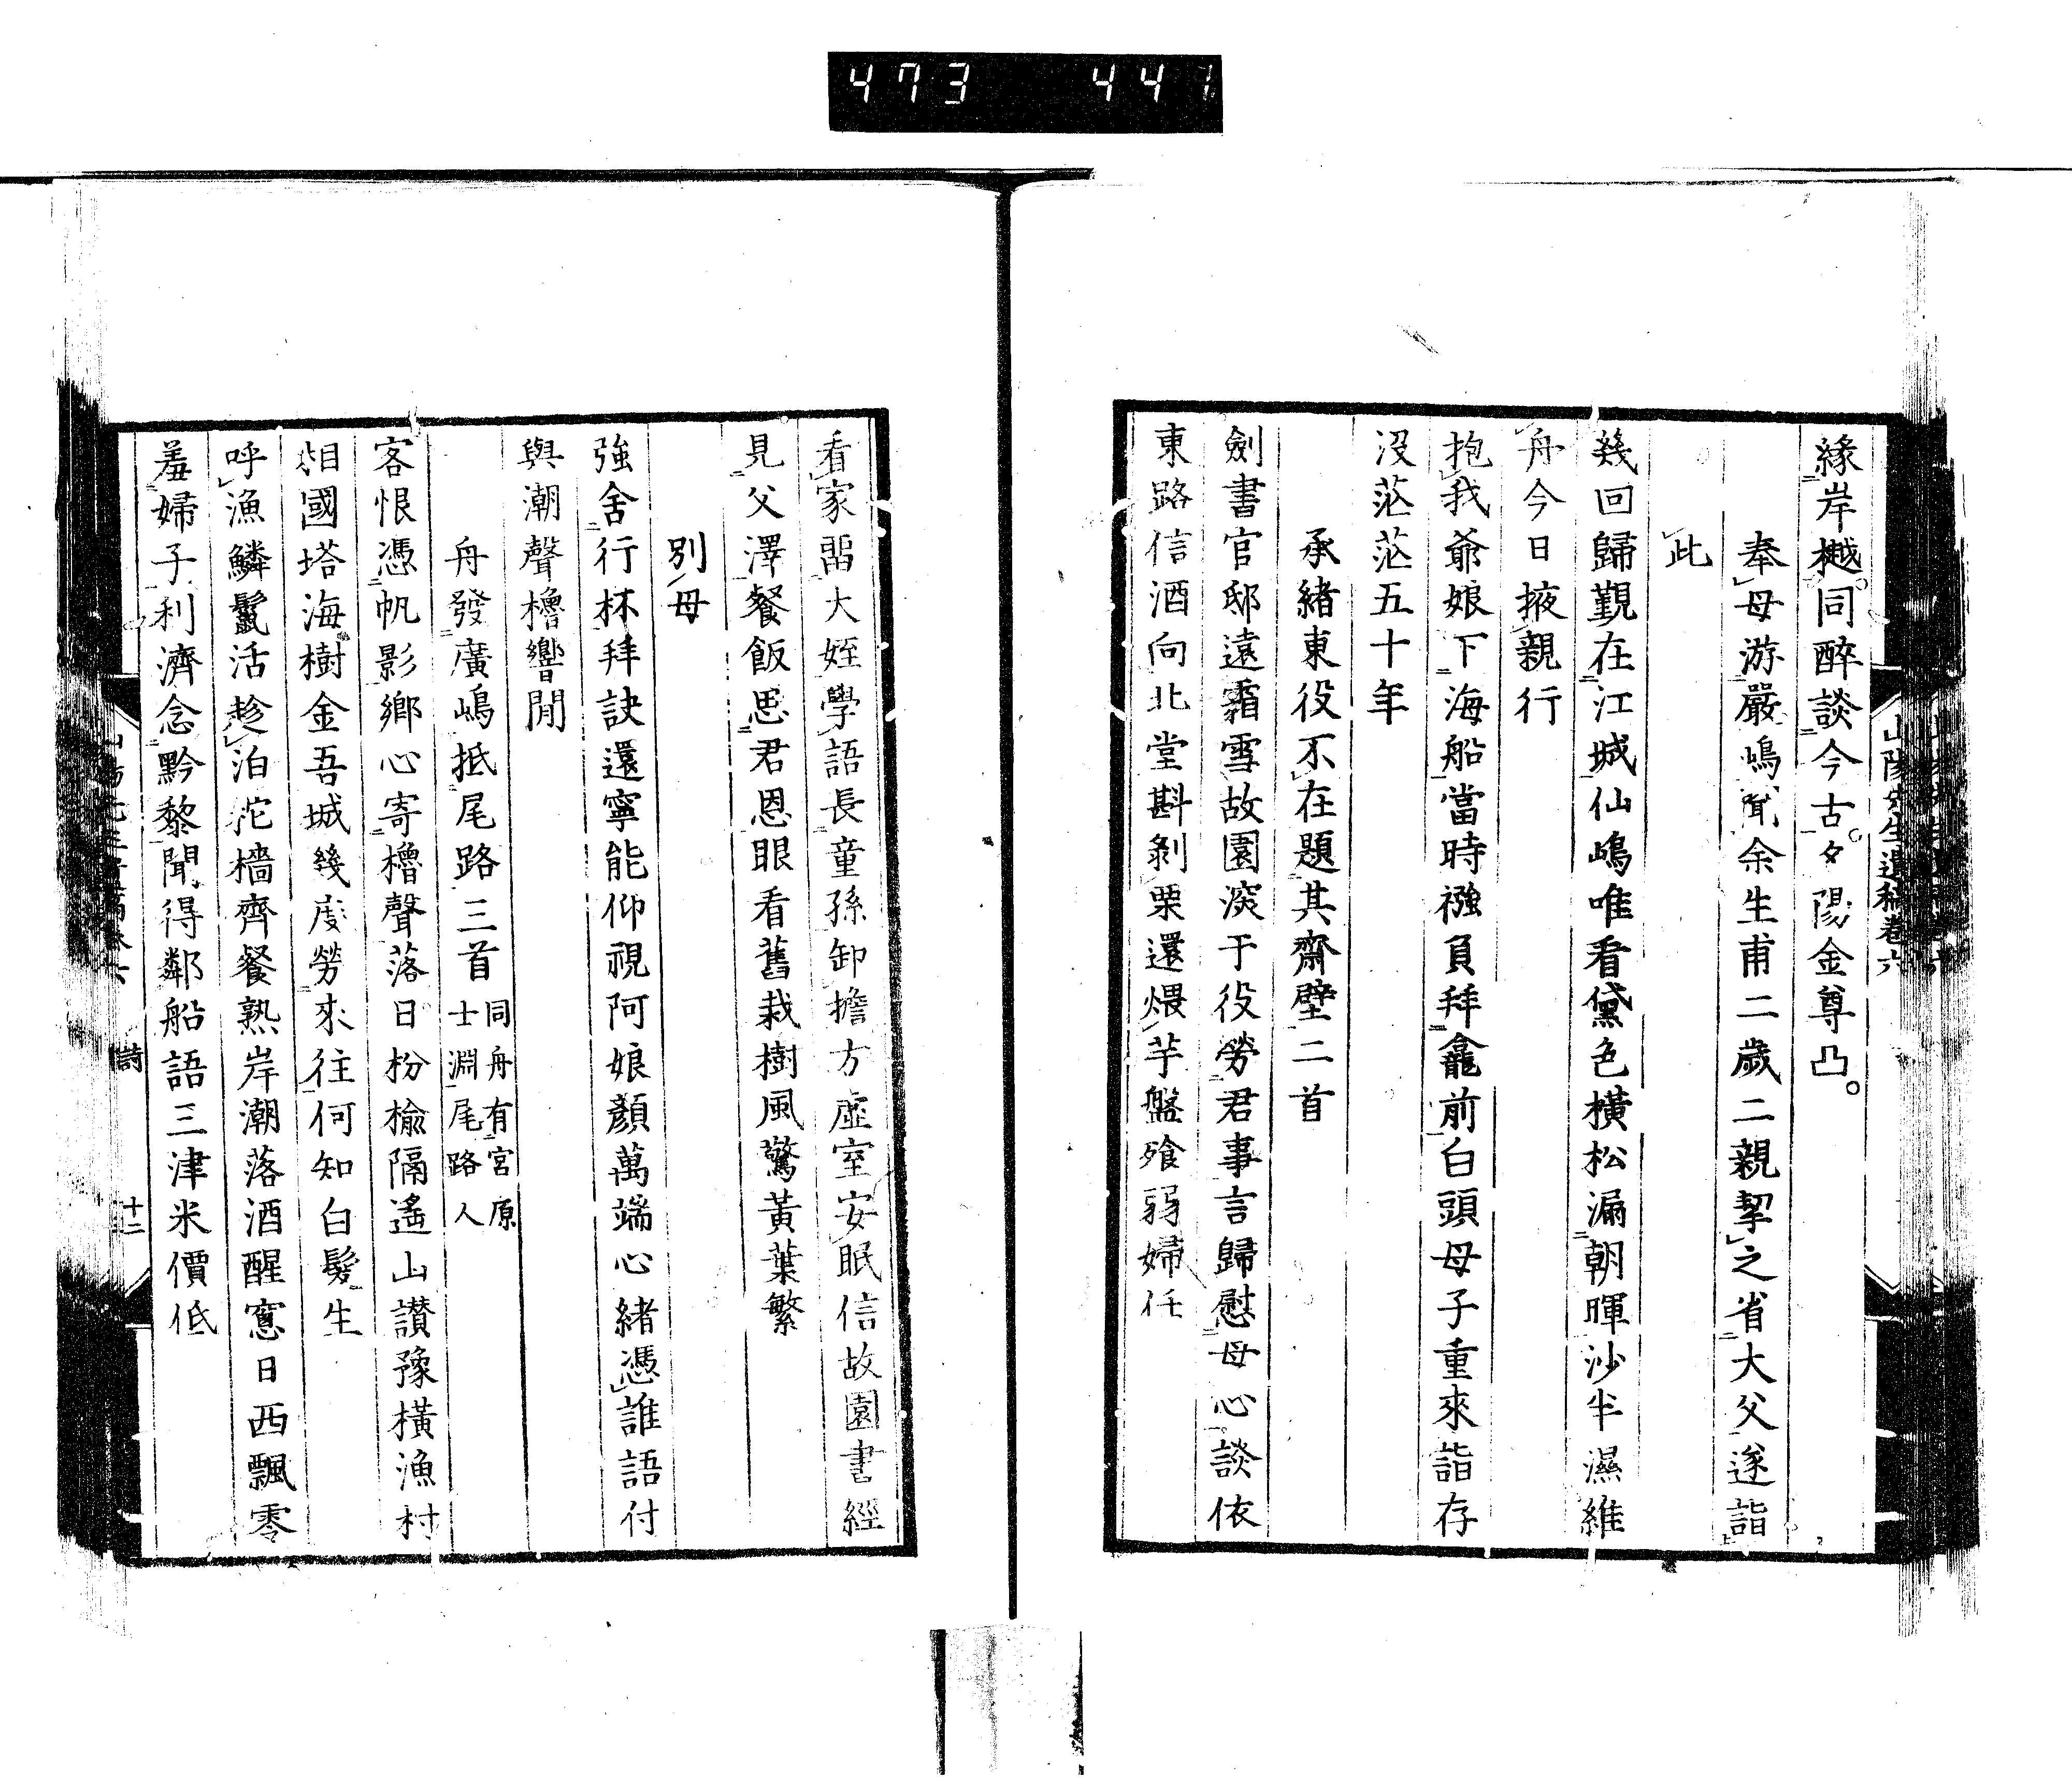 473 441
緣岸樾同醉談今古夕陽金尊凸
奉母游嚴嶋聞余生甫二歲二親挈之省大父遂詣
此
幾回歸覲在江城仙嶋唯看黛色橫松漏朝暉沙半濕維
舟今日掖親行
抱我爺娘下海船當時襁負拜龕前白頭母子重來詣存
沒茫茫五十年
承緒東役不在題其齋壁二首
劍書官邸遠霜雪故園深于役勞君事言歸慰母心談依
東路信酒向北堂斟剝栗還煨芋盤飱弱婦任
山陽先生遺稿卷六
看家畱大姪學語長童孫卸擔方虛室安眠信故園書經
見父澤餐飯思君恩眼看舊栽樹風驚黃葉繁
別母
強舍行杯拜訣還寧能仰視阿娘顏萬端心緒憑誰語付
與潮聲櫓響間
舟發廣嶋抵尾路三首 同舟有宮原士淵尾路人
客恨憑帆影鄉心寄櫓聲落日枌榆隔遙山讃豫橫漁村
相國塔海樹金吾城幾度勞來往何知白髮生
呼漁鱗鬣活趁泊柁檣齊餐熟岸潮落酒醒窻日西飄零
羞婦子利濟念黔黎聞得鄰船語三津米價低
詩 十二